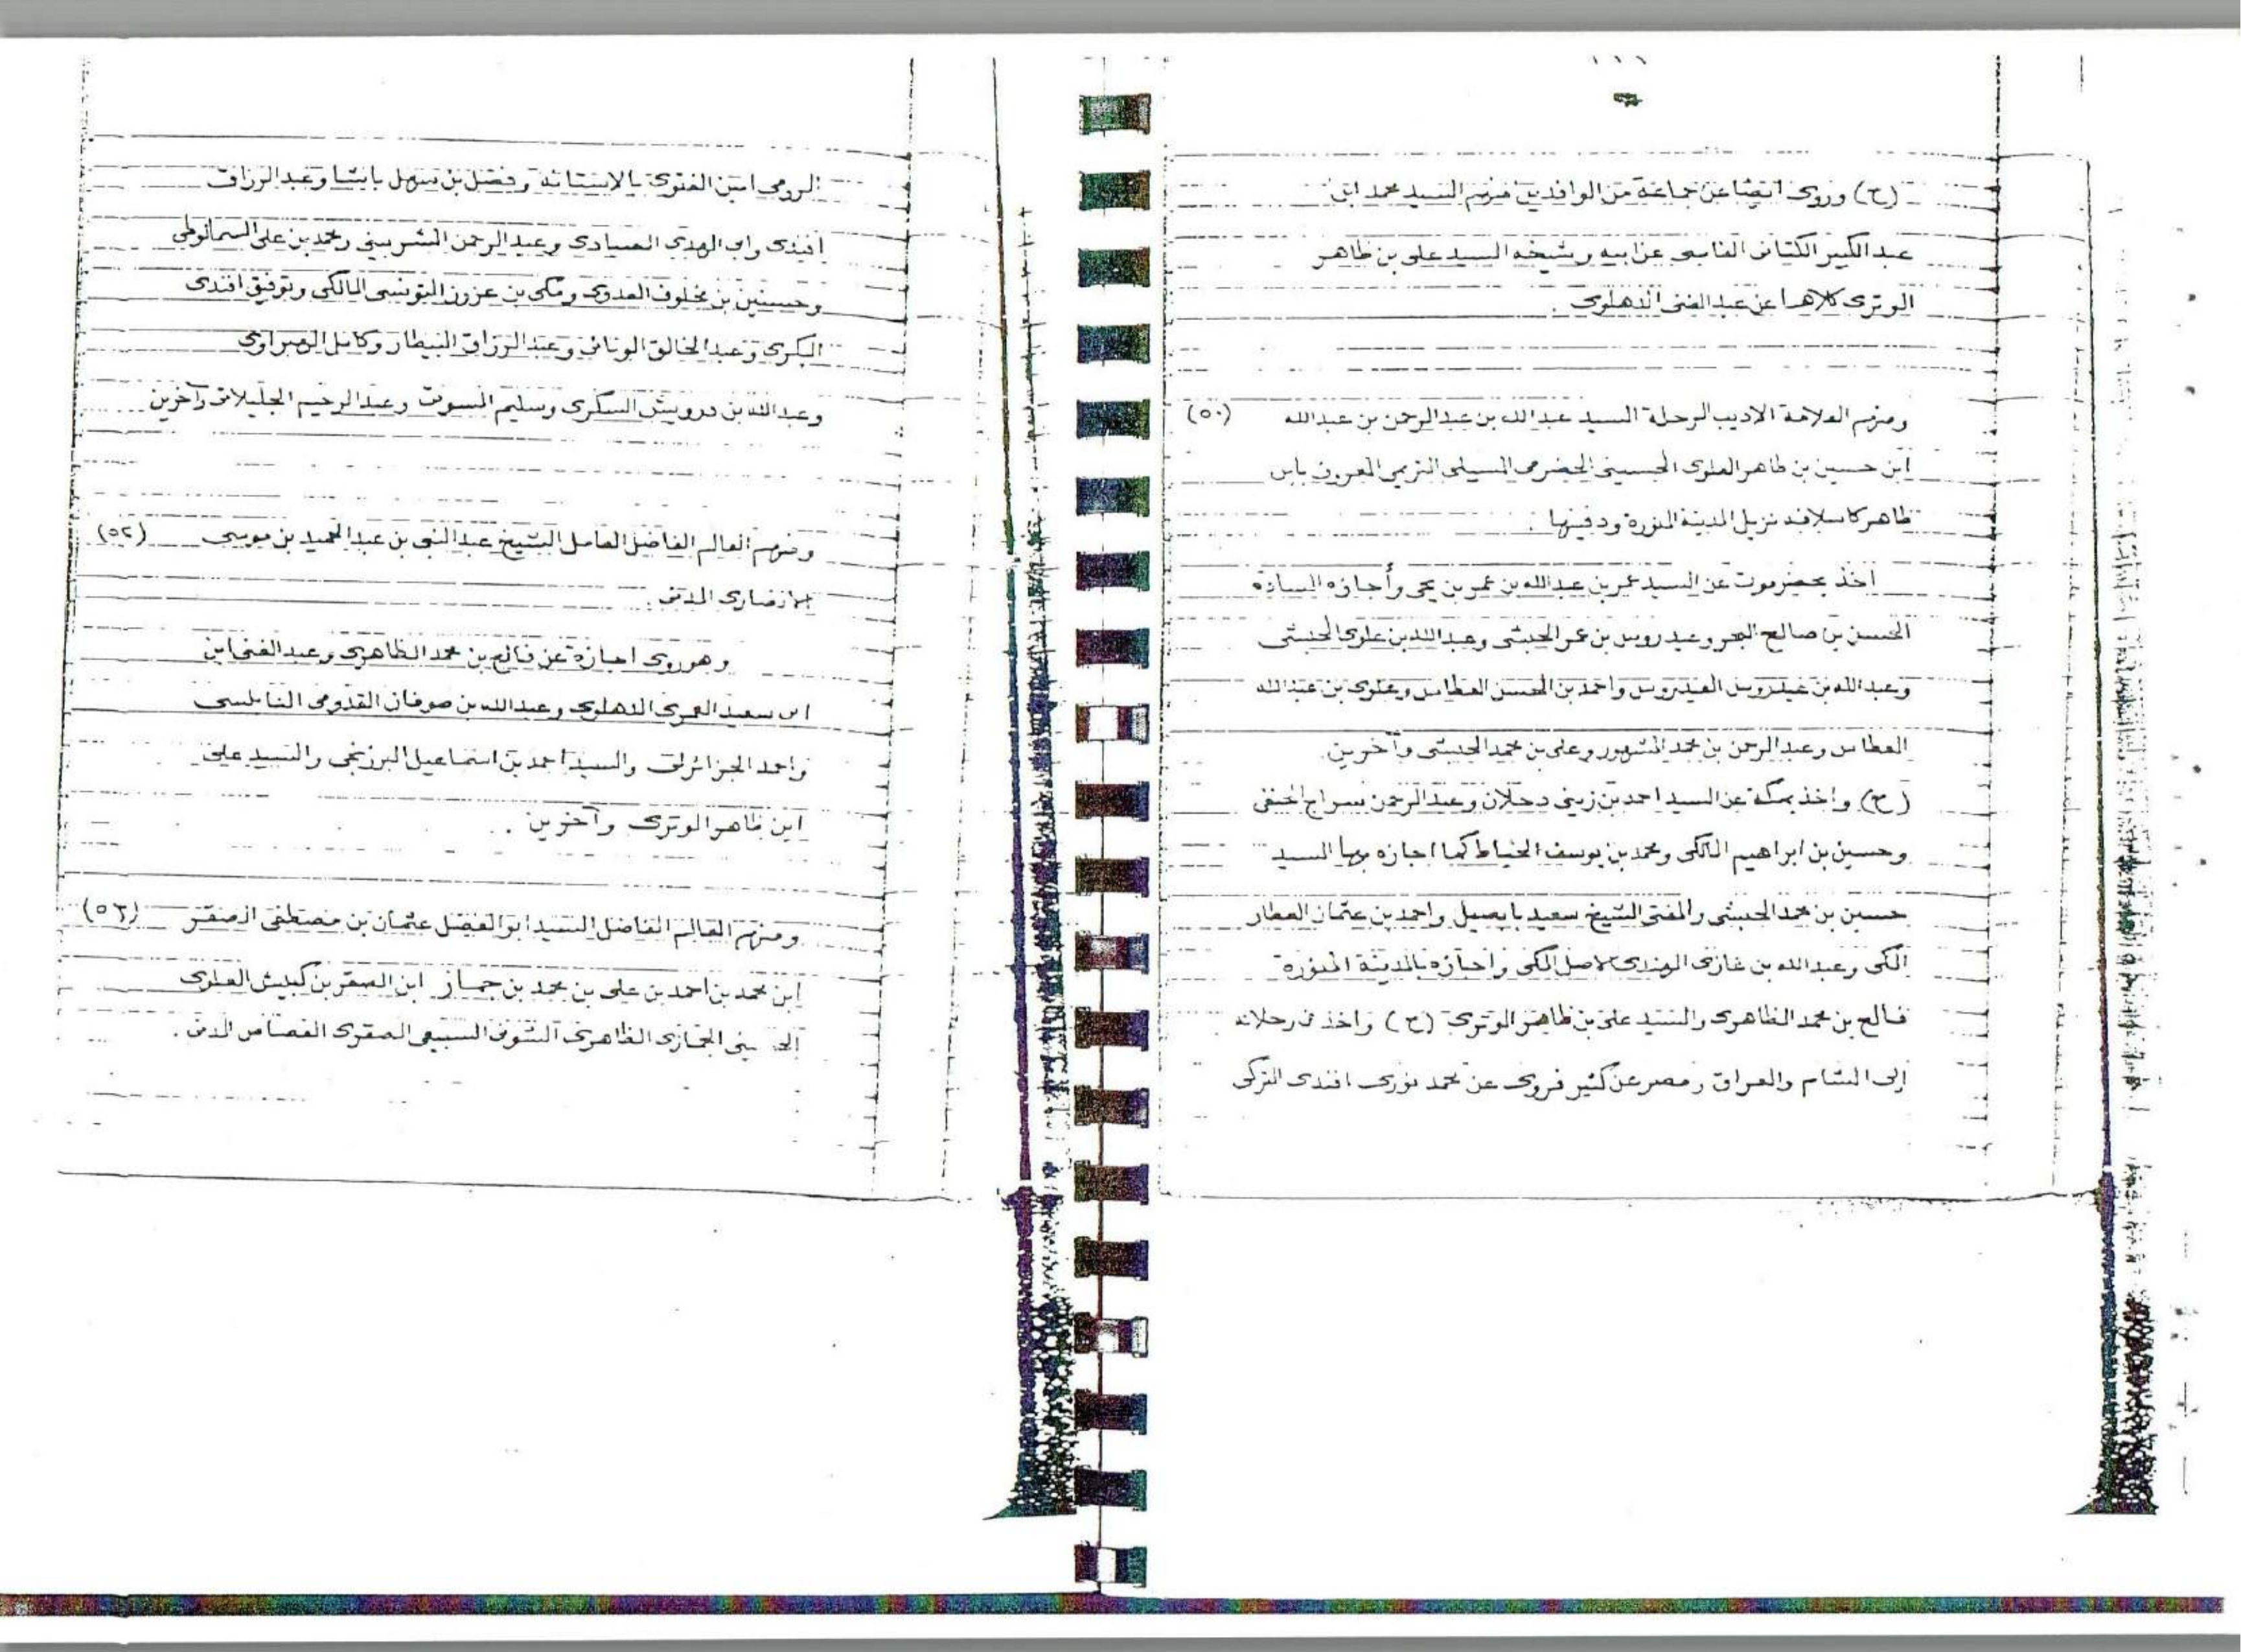 (ح) وروى ايضا عن جماعة من الوافدين منهم السيد محمد ابن
عبد الكبير الكتاني الفاسي عن ابيه وشيخه السيد على بن ظاهر
الوترى كلاهما عن عبد الغنى الدهلوى .
ومنهم العلامة الاديب الرحلة السيد عبد الله بن عبد الرحمن بن عبد الله (٥٠)
ابن حسين بن طاهر العلوى الحسينى الحضرمى المسيلى التريمي المعروف بابن
طاهر كاسلافه نزيل المدينة المنورة ودفينها .
اخذ بحضرموت عن السيد عمر بن عبد الله بن عمر بن يحى وأجازه السادة
الحسن بن صالح البحر وعيدروس بن عمر الحبشى وعبد الله بن علوى الحبشى
وعبد الله بن عيدروس العيدروس واحمد بن الحسن العطاس وعلوى بن عبد الله
العطاس وعبد الرحمن بن محمد المشهور وعلى بن محمد الحبشى وآخرين
(ح) واخذ بمكة عن السيد احمد بن زينى دحلان وعبد الرحمن سراج الحنفى
وحسين بن ابراهيم المالكى ومحمد بن يوسف الخياط كما اجازه بها السيد
حسين بن محمد الحبشى والمفتى الشيخ سعيد بابصيل واحمد بن عثمان العطار
المكى وعبد الله بن غازى الهندى الاصل المكى واجازه بالمدينة المنورة
فالح بن محمد الظاهرى والسيد على بن ظاهر الوترى (ح) واخذ فى رحلاته
إلى الشام والعراق ومصر عن كثير فروى عن محمد نورى افندى التركى
الرومى امين الفتوى بالاستانة وفضل بن سهل باشا وعبد الرزاق
افندى وابى الهدى الصيادى وعبد الرحمن الشربينى ومحمد بن على السمالوطى
وحسنين بن مخلوف العدوى ومكى بن عزوز التونسى المالكى وتوفيق افندى
البكرى وعبد الخالق الوفائى وعبد الرزاق البيطار وكامل الهبراوى
وعبد الله بن درويش السكرى وسليم المسوتى وعبد الرحيم وآخرين
ومنهم العالم الفاضل العامل الشيخ عبد النبى بن عبد الحميد بن موسى (٥٢)
الانصارى المدنى .
وهو روى اجازة عن فالح بن محمد الظاهرى وعبد الغنى ابن
ابى سعيد العمرى الدهلوى وعبد الله بن صوفان القدومى النابلسى
واحمد الجزائرلى والسيد احمد بن اسماعيل البرزنجى والسيد على
ابن ظاهر الوترى وآخرين .
ومنهم العالم الفاضل السيد ابو الفضل عثمان بن مصطفى الصقر (٥٣)
ابن محمد بن احمد بن على بن محمد بن جماز ابن الصقر بن كبيش العلوى
الحسينى الحجازى الظاهرى السبيعى الصقرى المدنى .